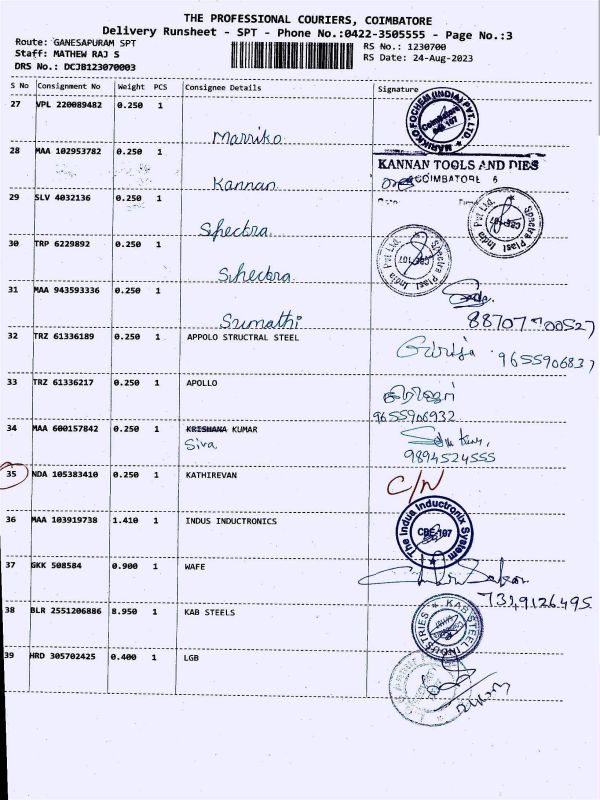 THE PROFESSIONAL COURIERS, COIMBATORE
Delivery Runsheet - SPT - Phone No.:0422-3505555 - Page No.:3
Route: GANESAPURAM SPT
RS No.: 1230700
Staff: MATHEW RAJ S
RS Date: 24-Aug-2023
DRS No.: DCJB123070003
S No Consignment No Weight PCS Consignee Details Signature
27 VPL 220089482 0.250 1 Marriko
MARIKKO FOCHEM (INDIA) PVT. LTD
28 MAA 102953782 0.250 1 Kannan
KANNAN TOOLS AND DIES
COIMBATORE 6
29 SLV 4032136 0.250 1 Spectra
Spectra Plast India Pvt Ltd.
30 TRP 6229892 0.250 1 Spectra
Spectra Plast India Pvt Ltd.
CBE-107
31 MAA 943593336 0.250 1 Sumathi
32 TRZ 61336189 0.250 1 APPOLO STRUCTRAL STEEL
Girija 9655906837
33 TRZ 61336217 0.250 1 APOLLO
9655906932
34 MAA 600157842 0.250 1 KRISHANA KUMAR
Siva
9894524555
35 NDA 105383410 0.250 1 KATHIREVAN C/N
36 MAA 103919738 1.410 1 INDUS INDUCTRONICS
The Indus Inductronix System
CBE-107
37 GKK 508584 0.900 1 WAFE
7349126495
38 BLR 2551206886 8.950 1 KAB STEELS
KAB STEEL INDUSTRIES
39 HRD 305702425 0.400 1 LGB